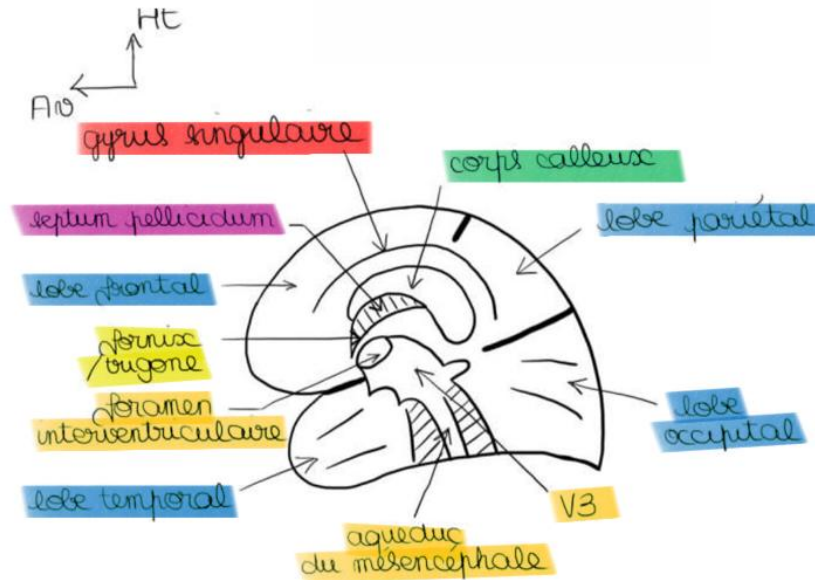 Ht
Av
gyrus singulaire
corps calleux
septum pellicidum
lobe pariétal
lobe frontal
fornix
/trigone
foramen
interventriculaire
lobe
occipital
lobe temporal
V3
aqueduc
du mésencéphale